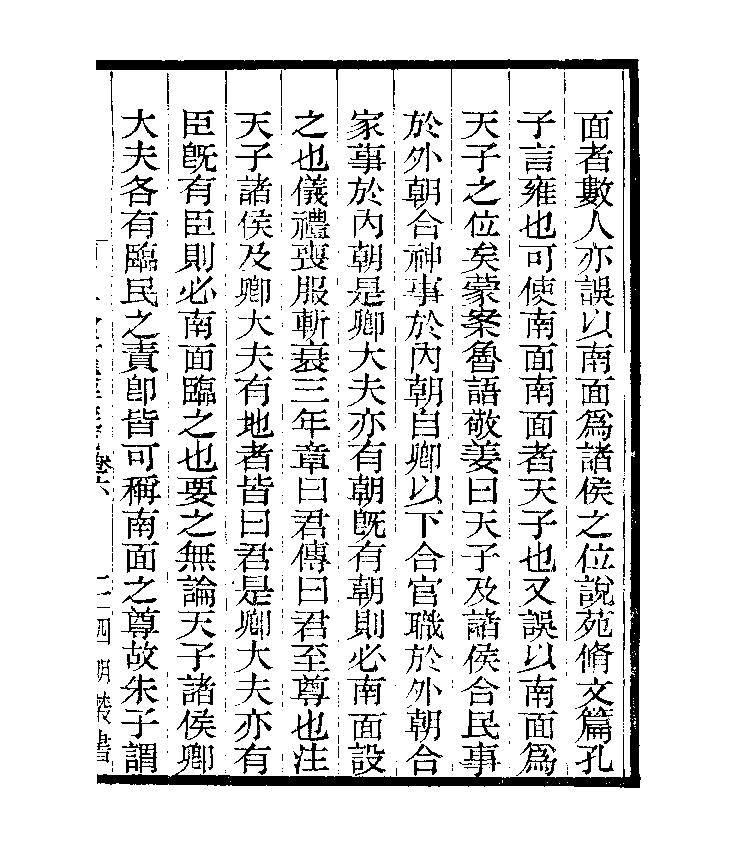 面者數人亦誤以南面爲諸侯之位說苑脩文篇孔
子言雍也可使南面南面者天子也又誤以南面爲
天子之位矣蒙案魯語敬姜曰天子及諸侯合民事
於外朝合神事於內朝自卿以下合官職於外朝合
家事於內朝是卿大夫亦有朝旣有朝則必南面設
之也儀禮喪服斬衰三年章曰君傳曰君至尊也注
天子諸侯及卿大夫有地者皆曰君是卿大夫亦有
臣旣有臣則必南面臨之也要之無論天子諸侯卿
大夫各有臨民之責卽皆可稱南面之尊故朱子謂
卷六 二 四明叢書